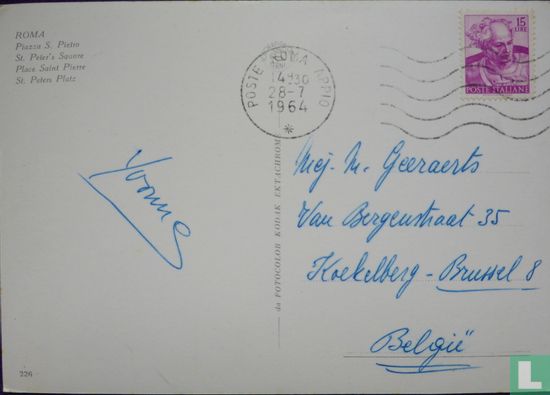 ROMA
Piazza S. Pietro
St. Peter's Square
Place Saint Pierre
St. Peters Platz
POSTE ROMA APPIO
14 30
28-7
1964
15
LIRE
POSTE ITALIANE
Yvonne
da FOTOCOLOR KODAK EKTACHROM
Mej. M. Geeraerts
Van Bergenstraat 35
Koekelberg - Brussel 8
België
226
L